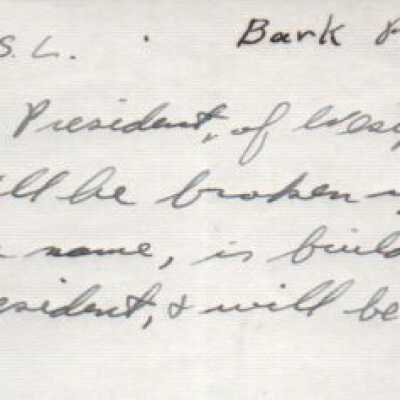 S. L. . Bark
President, of Wes
ill be broken
name, is build
esident, & will be